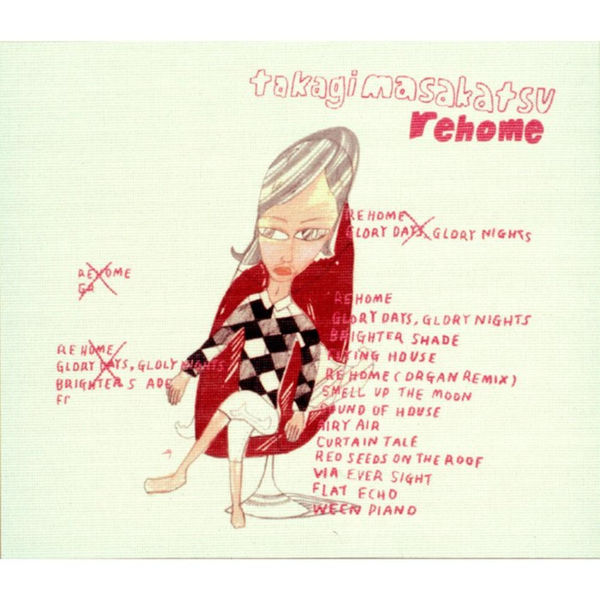 takagi masakatsu
rehome
REHOME
GLORY DAYS, GLORY NIGHTS
REHOME
GR
REHOME
GLORY DAYS, GLOLY NIGHTS
BRIGHTER S ADE
FI
REHOME
GLORY DAYS, GLORY NIGHTS
BRIGHTER SHADE
FLYING HOUSE
REHOME (ORGAN REMIX)
SMELL UP THE MOON
SOUND OF HOUSE
AIRY AIR
CURTAIN TALE
RED SEEDS ON THE ROOF
VIA EVER SIGHT
FLAT ECHO
WEEN PIANO